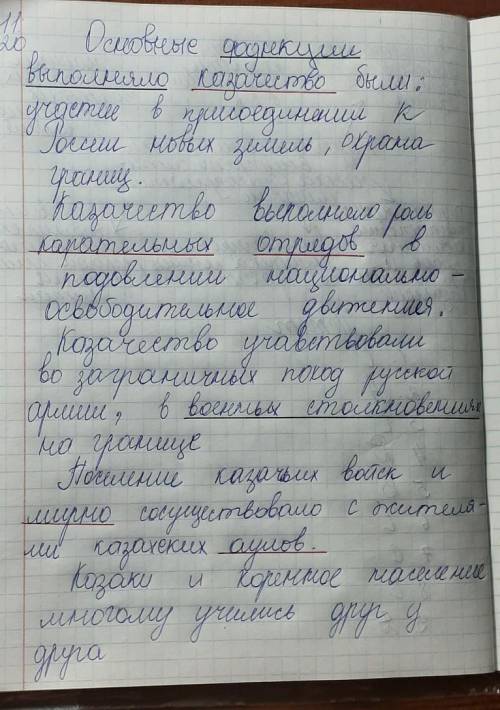 11
20
Основные фоднкции
выполняло казачество были:
участие в присоединении к
России новых земель, охрана
границ.
Казачество выполняло роль
карательных отрядов в
подовлении национально-
освободительное движения.
Казачество учавствовали
во заграничных поход русской
армии, в военных столкновениях
на границе
Поселение казачьих войск и
мирно сосуществовало с жителя-
ми казахских аулов.
Козаки и коренное население
многому учились друг у
друга